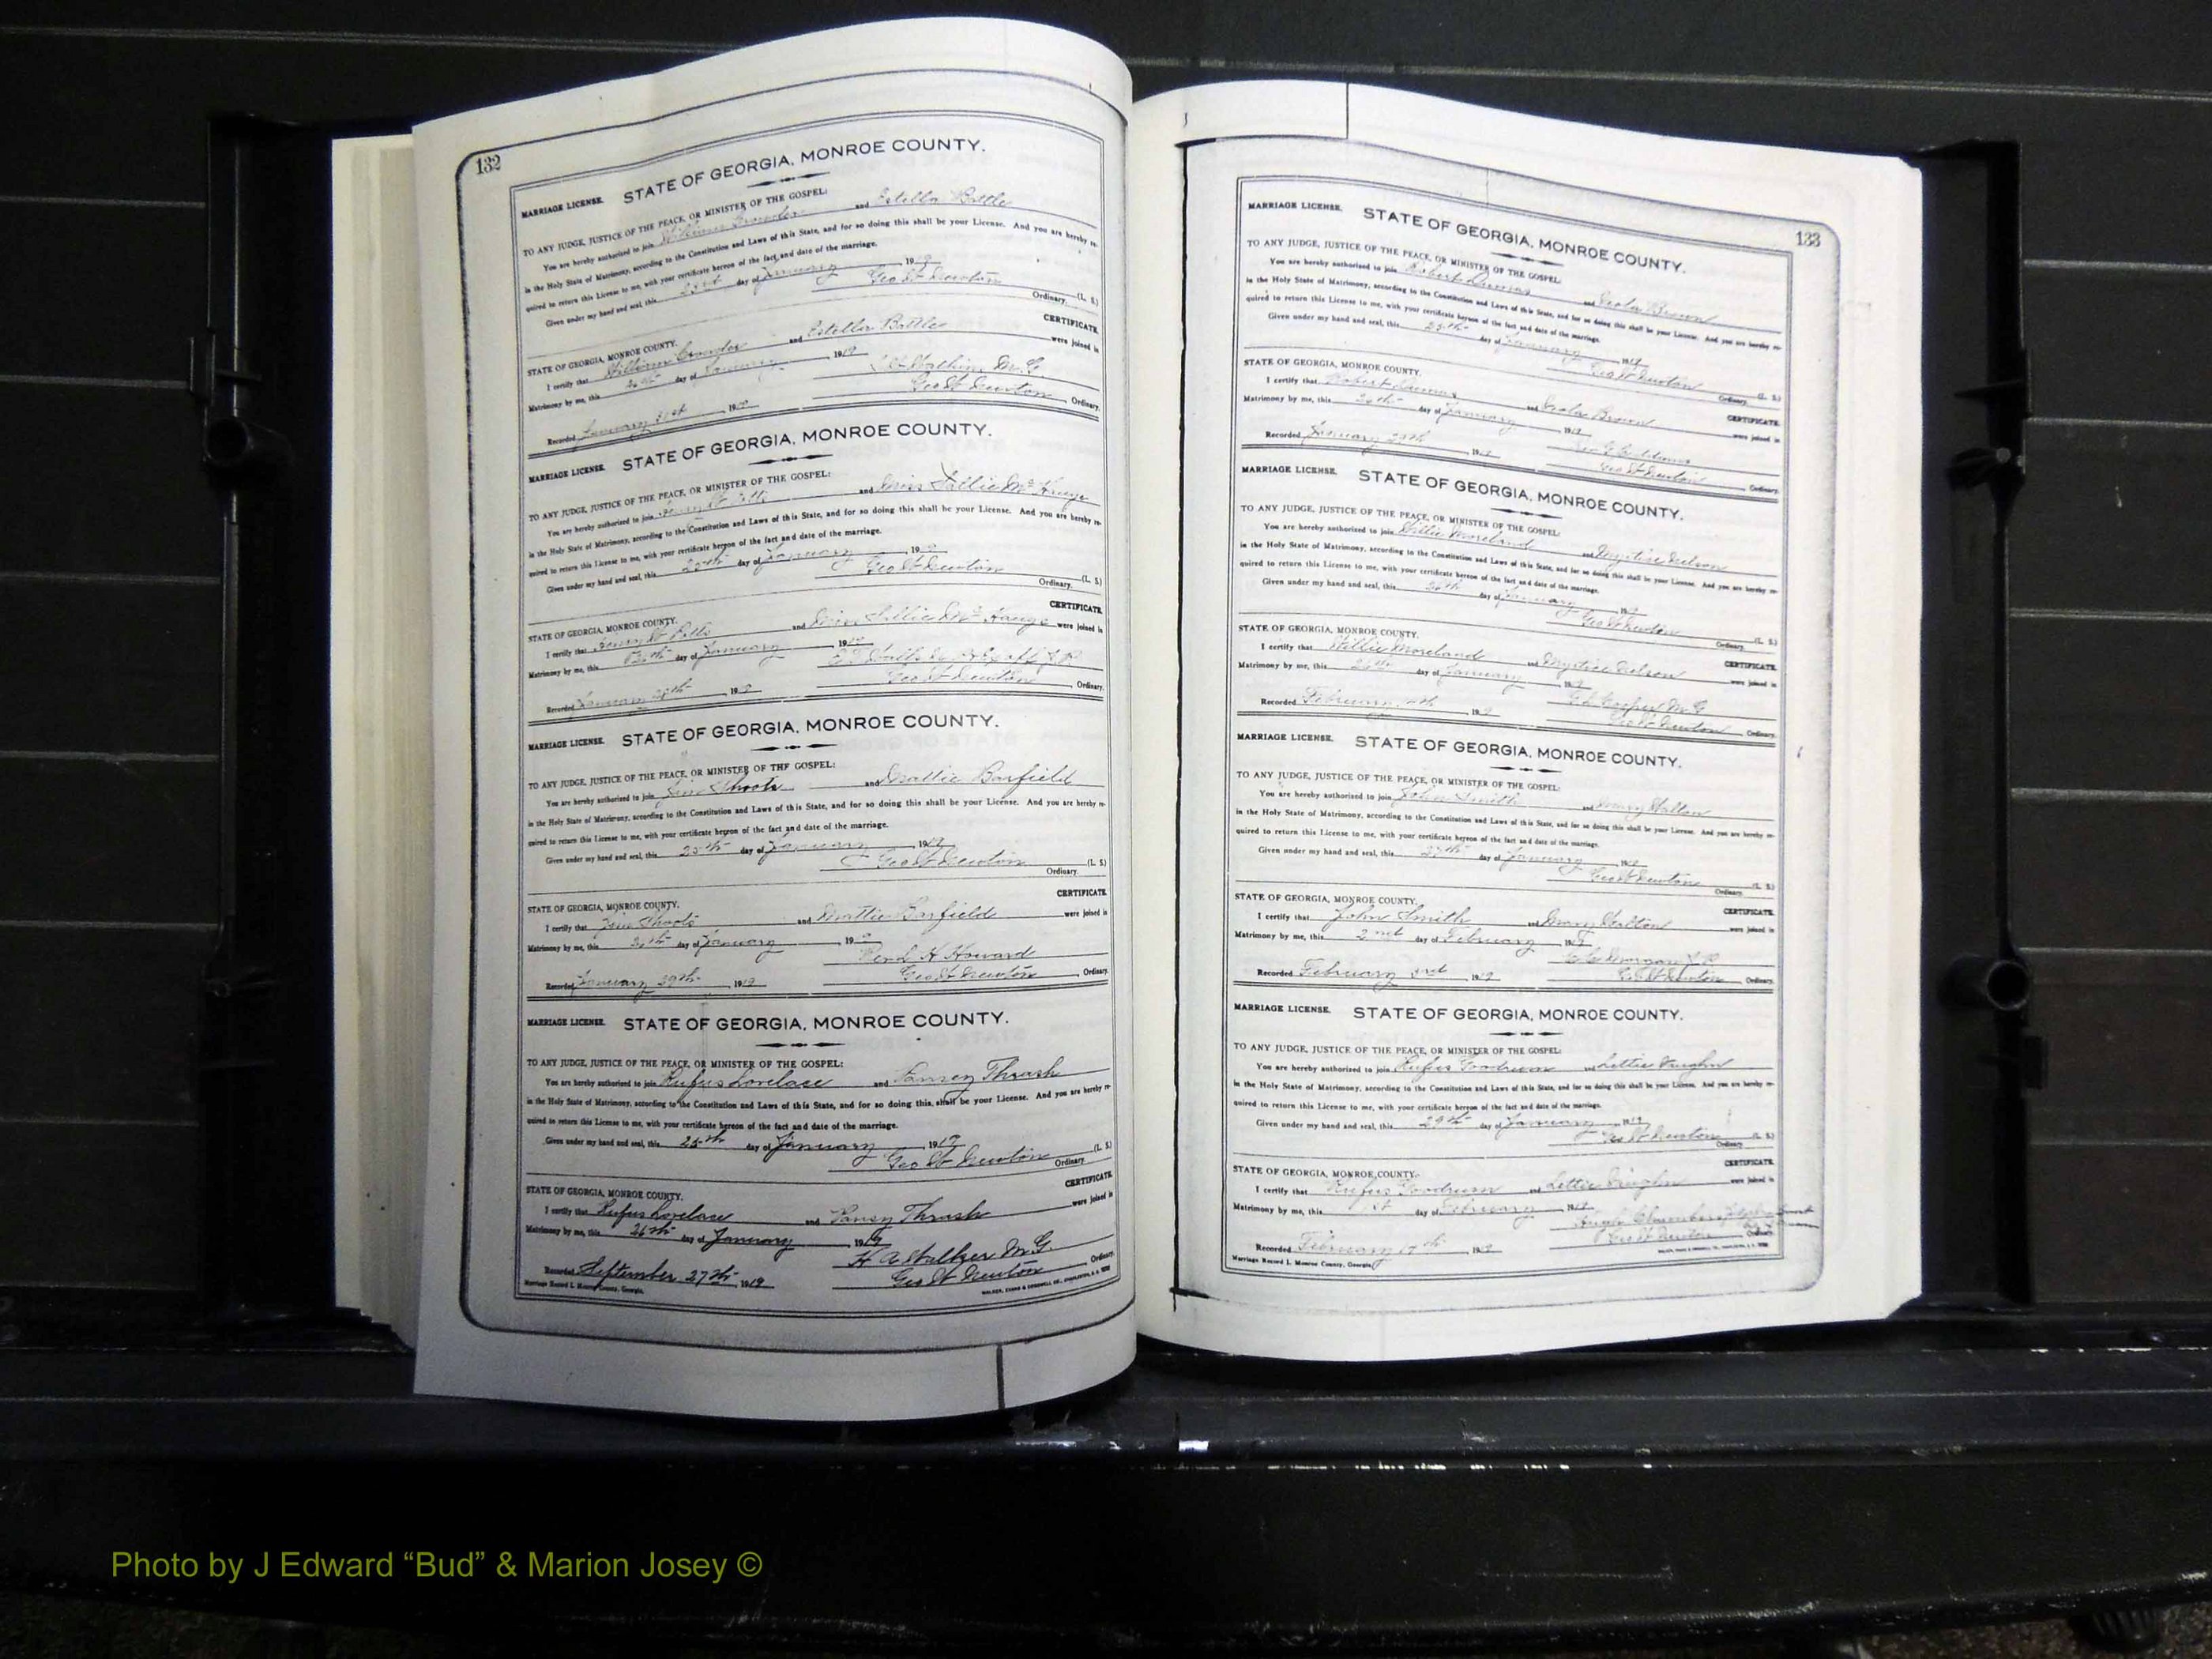 132
MARRIAGE LICENSE. STATE OF GEORGIA, MONROE COUNTY.
TO ANY JUDGE, JUSTICE OF THE PEACE, OR MINISTER OF THE GOSPEL:
You are hereby authorized to join William Crowder and Estella Battle
in the Holy State of Matrimony, according to the Constitution and Laws of this State, and for so doing this shall be your License. And you are hereby re-
quired to return this License to me, with your certificate hereon of the fact and date of the marriage.
Given under my hand and seal, this day of January 1919
Geo W Newton (L. S.)
Ordinary.
CERTIFICATE.
STATE OF GEORGIA, MONROE COUNTY.
I certify that William Crowder and Estella Battle were joined in
Matrimony by me, this 26th day of January 1919
M. G.
Recorded January 1919 Geo W Newton Ordinary.
MARRIAGE LICENSE. STATE OF GEORGIA, MONROE COUNTY.
TO ANY JUDGE, JUSTICE OF THE PEACE, OR MINISTER OF THE GOSPEL:
You are hereby authorized to join and Miss Sallie
in the Holy State of Matrimony, according to the Constitution and Laws of this State, and for so doing this shall be your License. And you are hereby re-
quired to return this License to me, with your certificate hereon of the fact and date of the marriage.
Given under my hand and seal, this 25th day of January 1919
Geo W Newton (L. S.)
Ordinary.
CERTIFICATE.
STATE OF GEORGIA, MONROE COUNTY.
I certify that and Miss Sallie were joined in
Matrimony by me, this day of January 19
Geo W Newton
Recorded January 19 Ordinary.
MARRIAGE LICENSE. STATE OF GEORGIA, MONROE COUNTY.
TO ANY JUDGE, JUSTICE OF THE PEACE, OR MINISTER OF THE GOSPEL:
You are hereby authorized to join Jim Shoots and Mattie Barfield
in the Holy State of Matrimony, according to the Constitution and Laws of this State, and for so doing this shall be your License. And you are hereby re-
quired to return this License to me, with your certificate hereon of the fact and date of the marriage.
Given under my hand and seal, this 25th day of January 1919
Geo W Newton (L. S.)
Ordinary.
CERTIFICATE.
STATE OF GEORGIA, MONROE COUNTY.
I certify that Jim Shoots and Mattie Barfield were joined in
Matrimony by me, this 26th day of January 19
H Howard
Recorded January 29th 1919 Geo W Newton Ordinary.
MARRIAGE LICENSE. STATE OF GEORGIA, MONROE COUNTY.
TO ANY JUDGE, JUSTICE OF THE PEACE, OR MINISTER OF THE GOSPEL:
You are hereby authorized to join Rufus Lovelace and Pansey Thrash
in the Holy State of Matrimony, according to the Constitution and Laws of this State, and for so doing this shall be your License. And you are hereby re-
quired to return this License to me, with your certificate hereon of the fact and date of the marriage.
Given under my hand and seal, this 25th day of January 1919
Geo W Newton (L. S.)
Ordinary.
CERTIFICATE.
STATE OF GEORGIA, MONROE COUNTY.
I certify that Rufus Lovelace and Pansey Thrash were joined in
Matrimony by me, this 26th day of January 1919
H A Walker M. G.
Recorded September 27th 1919 Geo W Newton Ordinary.
Marriage Record L Monroe County, Georgia.
133
MARRIAGE LICENSE. STATE OF GEORGIA, MONROE COUNTY.
TO ANY JUDGE, JUSTICE OF THE PEACE, OR MINISTER OF THE GOSPEL:
You are hereby authorized to join Robert Dumas and Brown
in the Holy State of Matrimony, according to the Constitution and Laws of this State, and for so doing this shall be your License. And you are hereby re-
quired to return this License to me, with your certificate hereon of the fact and date of the marriage.
Given under my hand and seal, this 25th day of January 1919
Geo W Newton (L. S.)
Ordinary.
STATE OF GEORGIA, MONROE COUNTY.
CERTIFICATE.
I certify that Robert Dumas and Brown were joined in
Matrimony by me, this 26th day of January 1919
Recorded January 29th 19 Geo W Newton Ordinary.
MARRIAGE LICENSE. STATE OF GEORGIA, MONROE COUNTY.
TO ANY JUDGE, JUSTICE OF THE PEACE, OR MINISTER OF THE GOSPEL:
You are hereby authorized to join Willie Moreland and
in the Holy State of Matrimony, according to the Constitution and Laws of this State, and for so doing this shall be your License. And you are hereby re-
quired to return this License to me, with your certificate hereon of the fact and date of the marriage.
Given under my hand and seal, this day of January 19
Geo W Newton (L. S.)
Ordinary.
STATE OF GEORGIA, MONROE COUNTY.
CERTIFICATE.
I certify that Willie Moreland and were joined in
Matrimony by me, this 26th day of January 1919
M. G.
Recorded February 19 Geo W Newton Ordinary.
MARRIAGE LICENSE. STATE OF GEORGIA, MONROE COUNTY.
TO ANY JUDGE, JUSTICE OF THE PEACE, OR MINISTER OF THE GOSPEL:
You are hereby authorized to join John Smith and Mary Walton
in the Holy State of Matrimony, according to the Constitution and Laws of this State, and for so doing this shall be your License. And you are hereby re-
quired to return this License to me, with your certificate hereon of the fact and date of the marriage.
Given under my hand and seal, this 27th day of January 1919
Geo W Newton (L. S.)
Ordinary.
STATE OF GEORGIA, MONROE COUNTY.
CERTIFICATE.
I certify that John Smith and Mary Walton were joined in
Matrimony by me, this 2nd day of February 1919
Recorded February 3rd 1919 Geo W Newton Ordinary.
MARRIAGE LICENSE. STATE OF GEORGIA, MONROE COUNTY.
TO ANY JUDGE, JUSTICE OF THE PEACE, OR MINISTER OF THE GOSPEL:
You are hereby authorized to join Rufus Goodrum and Lettie Vaughn
in the Holy State of Matrimony, according to the Constitution and Laws of this State, and for so doing this shall be your License. And you are hereby re-
quired to return this License to me, with your certificate hereon of the fact and date of the marriage.
Given under my hand and seal, this 29th day of January 1919
Geo W Newton (L. S.)
Ordinary.
CERTIFICATE.
STATE OF GEORGIA, MONROE COUNTY.
I certify that Rufus Goodrum and Lettie Vaughn were joined in
Matrimony by me, this 1st day of February 1919
Hugh Chambers
Recorded February 17th 1919 Geo W Newton Ordinary.
Marriage Record L Monroe County, Georgia
Photo by J Edward “Bud” & Marion Josey ©